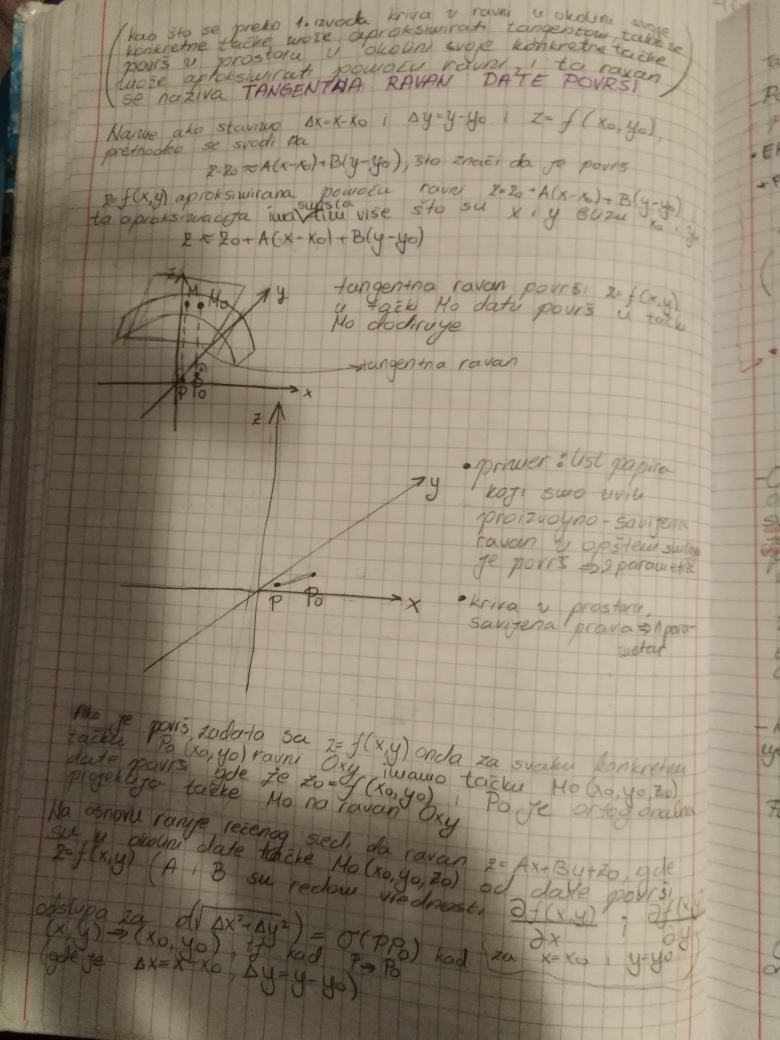 (kao što se preko 1. izvoda kriva u ravni u okolini svoje
konkretne tačke može aproksimirati tangentom, tako se
površ u prostoru u okolini svoje konkretne tačke
može aproksimirati pomoću ravni, i ta ravan
se naziva TANGENTNA RAVAN DATE POVRŠI)
Naime ako stavimo Δx=x-x₀ i Δy=y-y₀ i z=f(x₀,y₀),
prethodno se svodi na
z-z₀≈A(x-x₀)+B(y-y₀), što znači da je površ
z=f(x,y) aproksimirana pomoću ravni z=z₀+A(x-x₀)+B(y-y₀)
smisla
ta aproksimacija ima utim više što su x i y blizu x₀ i y₀
z≈z₀+A(x-x₀)+B(y-y₀)
z
M M₀ y
P P₀
x
tangentna ravan površi z=f(x,y)
u tački M₀ datu površ u tački
M₀ dodiruje
tangentna ravan
z
y
P P₀ x
• primer: list papira
koji smo uvili
proizvoljno-savijena
ravan u opštem slučaju
je površ ⇒ 2 parametra
• kriva u prostoru,
savijena prava ⇒ 1 para-
metar
Ako je površ zadata sa z=f(x,y) onda za svaku konkretnu
tačku P₀(x₀,y₀) ravni Oxy imamo tačku M₀(x₀,y₀,z₀)
date površi gde je z₀=f(x₀,y₀) i P₀ je ortogonalna
projekcija tačke M₀ na ravan Oxy
Na osnovu ranije rečenog sledi da ravan z=Ax+By+z₀, gde
su u okolini date tačke M₀(x₀,y₀,z₀) od date površi
z=f(x,y) (A i B su redom vrednosti ∂f(x,y)/∂x i ∂f(x,y)/∂y
za x=x₀ i y=y₀)
odstupa za σ(√Δx²+Δy²) = σ(PP₀) kad
(x,y)→(x₀,y₀), tj kad P→P₀
(gde je Δx=x-x₀, Δy=y-y₀)